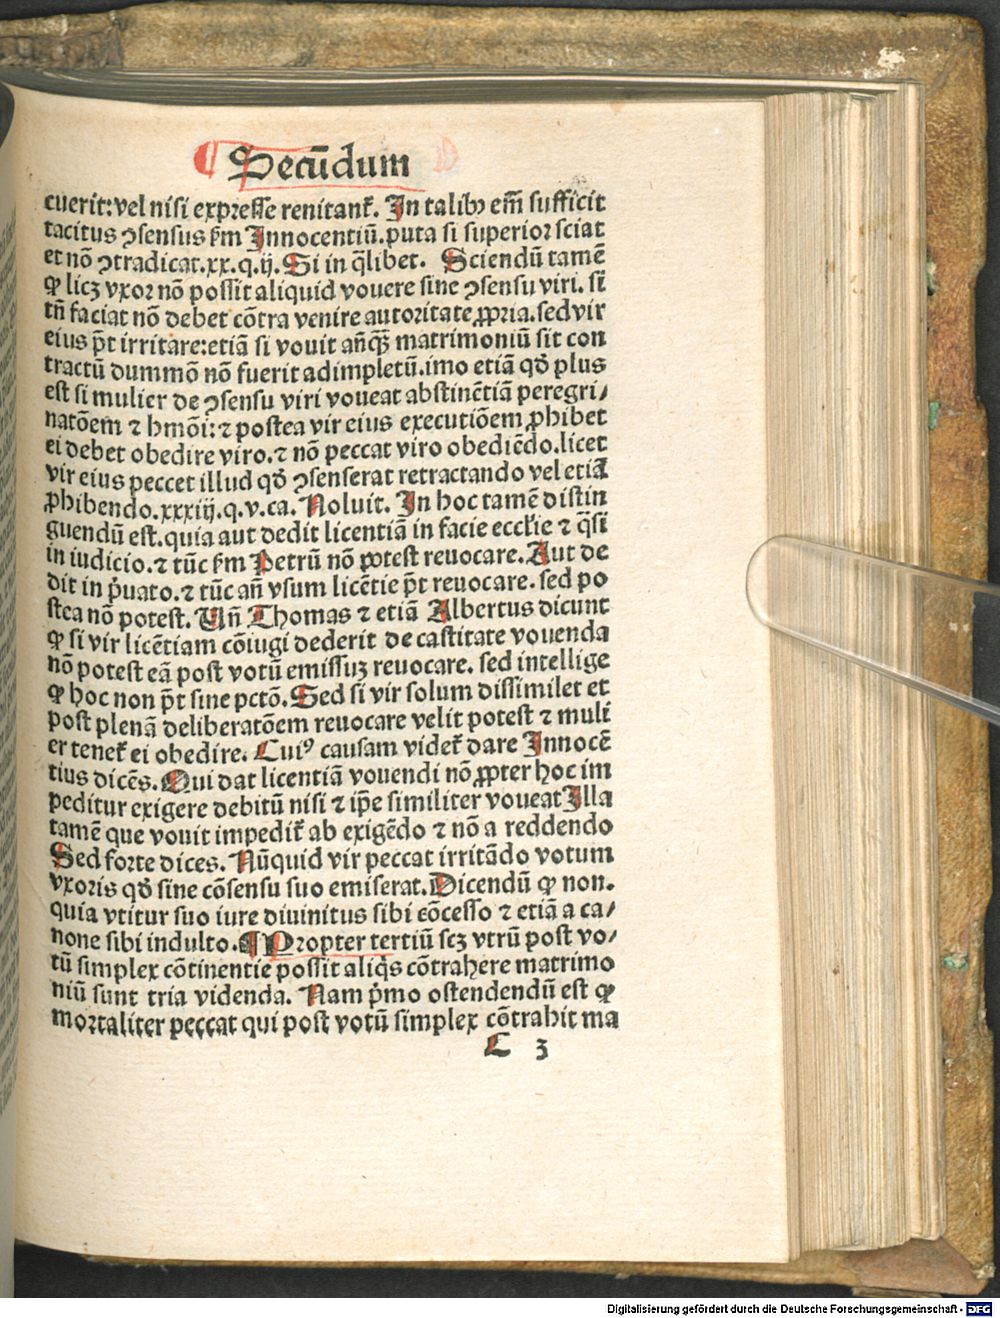 Secūdum
cuerit: vel nisi expresse renitant̃. In talibꝰ em̃ sufficit
tacitus ꝯsensus ẜm Innocentiū. puta si superioꝛ sciat
et nō ꝯtradicat. xx. q. ij. Si in q̄libet. Sciendū tamē
ꝙ licꝫ vxoꝛ nō possit aliquid vouere sine ꝯsensu viri. si
tñ faciat nō debet cōtra venire autoꝛitate ꝓpꝛia. sed vir
eius p̄t irritare: etiā si vouit añq̄ꝫ matrimoniū sit con
tractū dummō nō fuerit adimpletū. imo etiā qđ plus
est si mulier de ꝯsensu viri voueat abstinētiā peregri/
natōem ⁊ hmōi: ⁊ postea vir eius executiōem ꝓhibet
ei debet obedire viro. ⁊ nō peccat viro obediēdo. licet
vir eius peccet illud qđ ꝯsenserat retractando vel etiā
ꝓhibendo. xxxiij. q. v. ca. Noluit. In hoc tamē distin
guendū est. quia aut dedit licentiā in facie eccl̄ie ⁊ q̄si
in iudicio. ⁊ tūc ẜm Petrū nō potest reuocare. Aut de
dit in p̍uato. ⁊ tūc añ vsum licētie p̄t reuocare. sed po
stea nō potest. Uñ Thomas ⁊ etiā Albertus dicunt
ꝙ si vir licētiam cōiugi dederit de castitate vouenda
nō potest eā post votū emissuꝫ reuocare. sed intellige
ꝙ hoc non p̄t sine pctō. Sed si vir solum dissimilet et
post plenā deliberatōem reuocare velit potest ⁊ muli
er tenet̃ ei obedire. Cuiꝰ causam videt̃ dare Innocē
tius dicēs. Qui dat licentiā vouendi nō ꝓpter hoc im
peditur exigere debitū nisi ⁊ ip̄e similiter voueat Illa
tamē que vouit impedit̃ ab exigēdo ⁊ nō a reddendo
Sed forte dices. Nūquid vir peccat irritādo votum
vxoris qđ sine cōsensu suo emiserat. Dicendū ꝙ non.
quia vtitur suo iure diuinitus sibi cōcesso ⁊ etiā a ca/
none sibi indulto. ¶ Propter tertiū scꝫ vtrū post vo/
tū simplex cōtinentie possit aliq̍s cōtrahere matrimo
niū sunt tria videnda. Nam p̍mo ostendendū est ꝙ
moꝛtaliter peccat qui post votū simplex cōtrahit ma
C 3
Digitalisierung gefördert durch die Deutsche Forschungsgemeinschaft - DFG